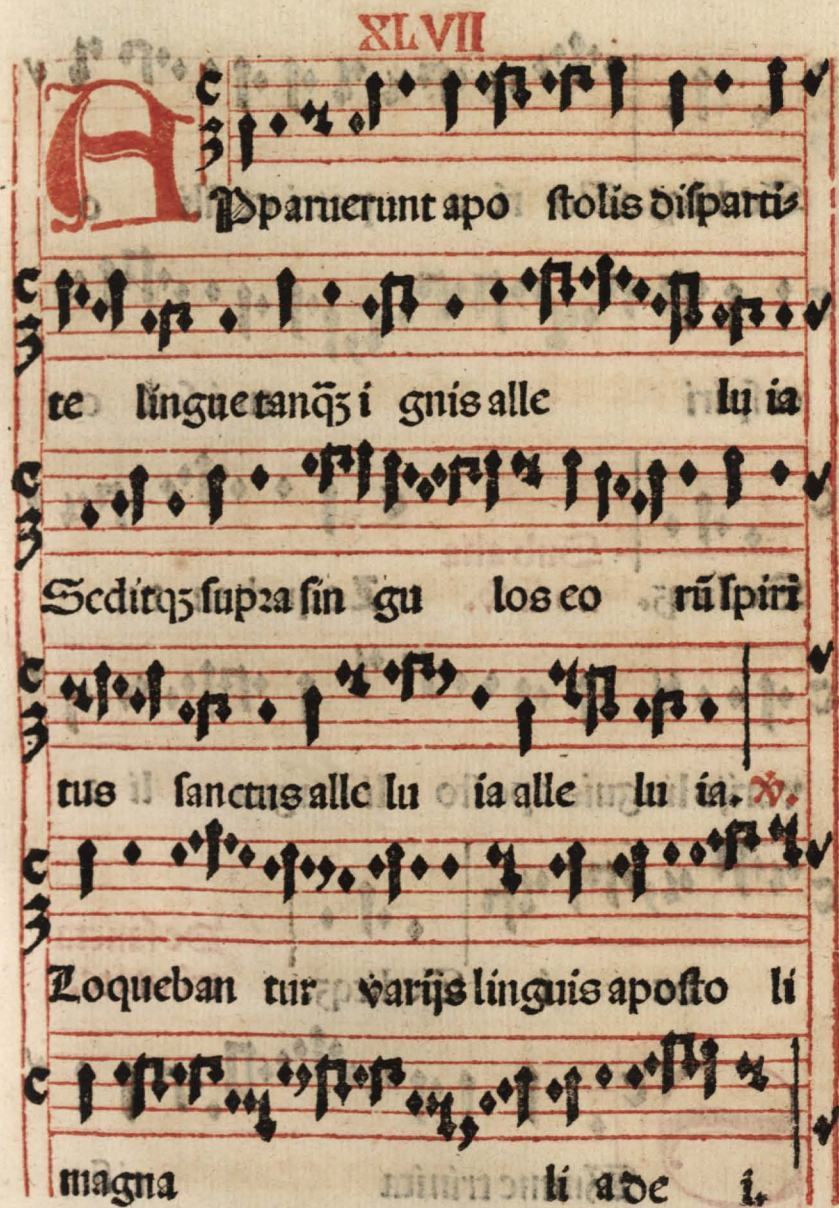 XLVII
APparuerunt apo stolis disparti⸗
te lingue tanq̄ꝫ i gnis alle lu ia
Seditqꝫ supra sin gu los eo rū spiri
tus sanctus alle lu ia alle lu ia. ℣.
Loqueban tur varijs linguis aposto li
magna li a de i.